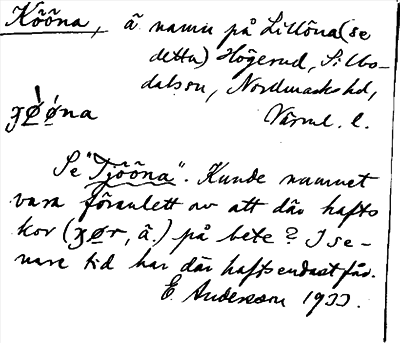 Kööna, ä namn på Lillöna (se
detta) Högerud, Silbo-
dalssn, Nordmarks hd,
Värml. l.
Se "Tjööna". Kunde namnet
vara föranlett av att där hafts
kor (  , ä.) på bete? I se-
nare tid har där hafts endast får.
E. Andersson 1933.